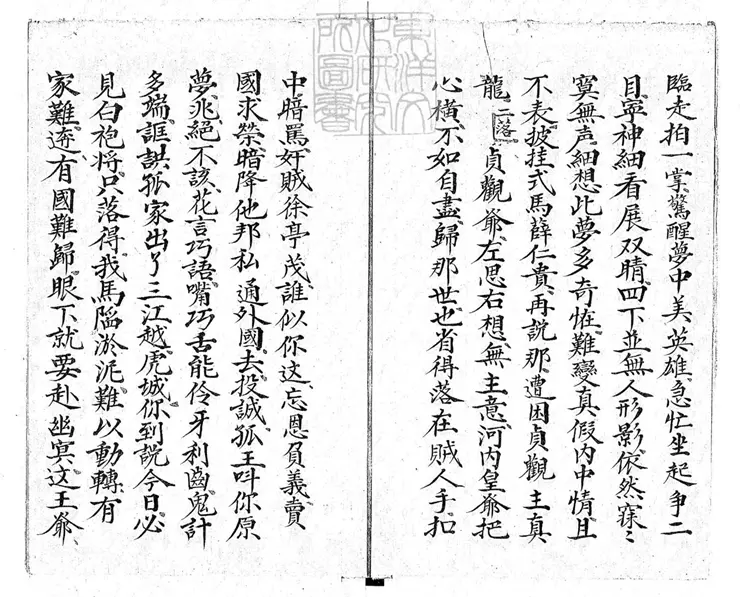 東洋文
化研究
所圖書
臨走拍一掌、驚醒夢中美英雄、急忙坐起爭二
目、寧神細看展双睛、四下並無人形影、依然寂〻
寞無声、細想比夢多奇怪、難變真假內中情、且
不表、披挂弍馬薛仁貴、再說那、遭困貞觀主真
龍、二落 貞觀爺、左思右想、無主意、河內皇爺把
心橫、不如自盡歸那世、也省得落在賊人手、扣
中、暗罵、奸賊徐亭茂、誰似你这、忘恩負義、賣
國求榮、暗降他邦、私通外國去投誠、孤王叫你原
夢兆、絕不該、花言巧語、嘴巧舌能、伶牙利齒、鬼計
多端、誆誤孤家出了三江越虎城、你到說、今日必
見白袍將、只落得、我馬陷淤泥、難以動轉、有
家難奔、有國難歸、眼下就要赴幽冥、这王爺、